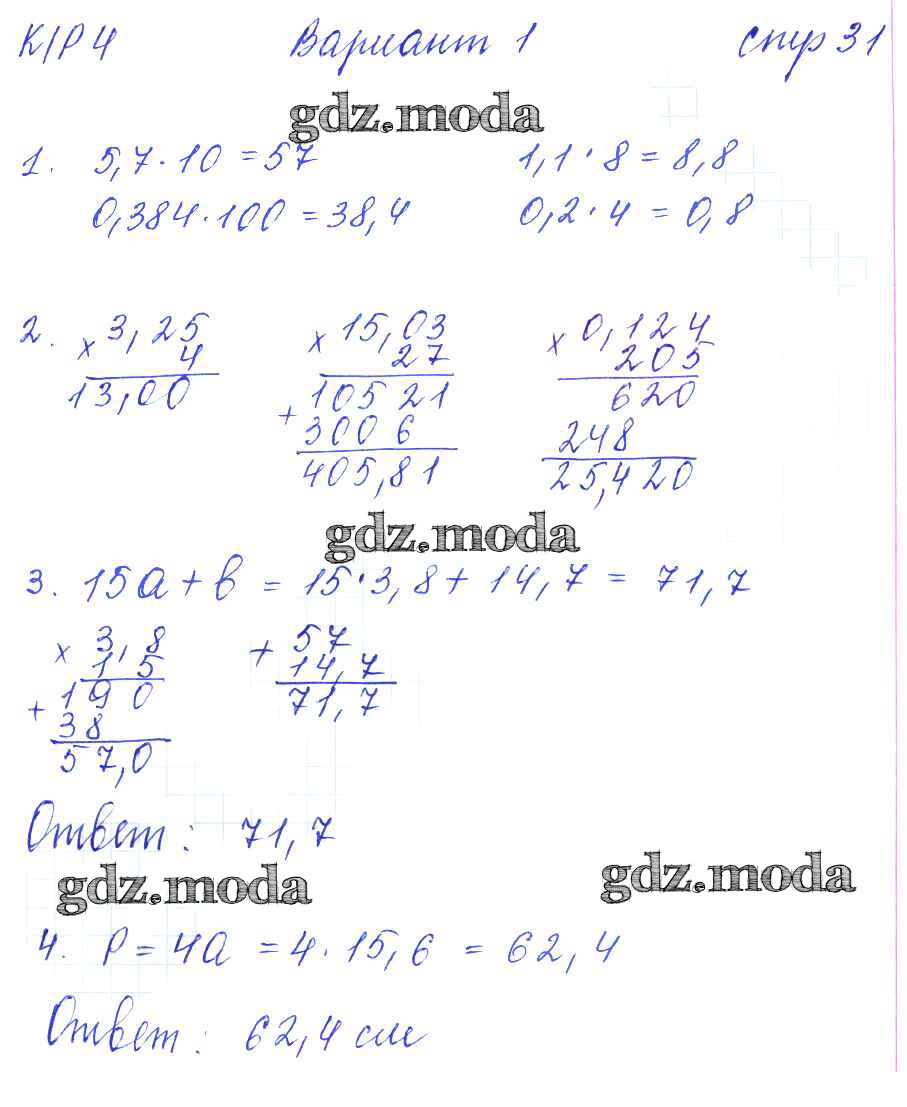 К/Р 4 Вариант 1 стр 31
gdz.moda
1. 5,7·10 = 57 1,1·8 = 8,8
0,384·100 = 38,4 0,2·4 = 0,8
2. × 3,25 × 15,03 × 0,124
4 27 205
13,00 10521 620
+ 3006 248
405,81 25,420
gdz.moda
3. 15a + b = 15·3,8 + 14,7 = 71,7
× 3,8 + 57
15 14,7
+ 190 71,7
38
57,0
Ответ: 71,7
gdz.moda gdz.moda
4. P = 4a = 4·15,6 = 62,4
Ответ: 62,4 см